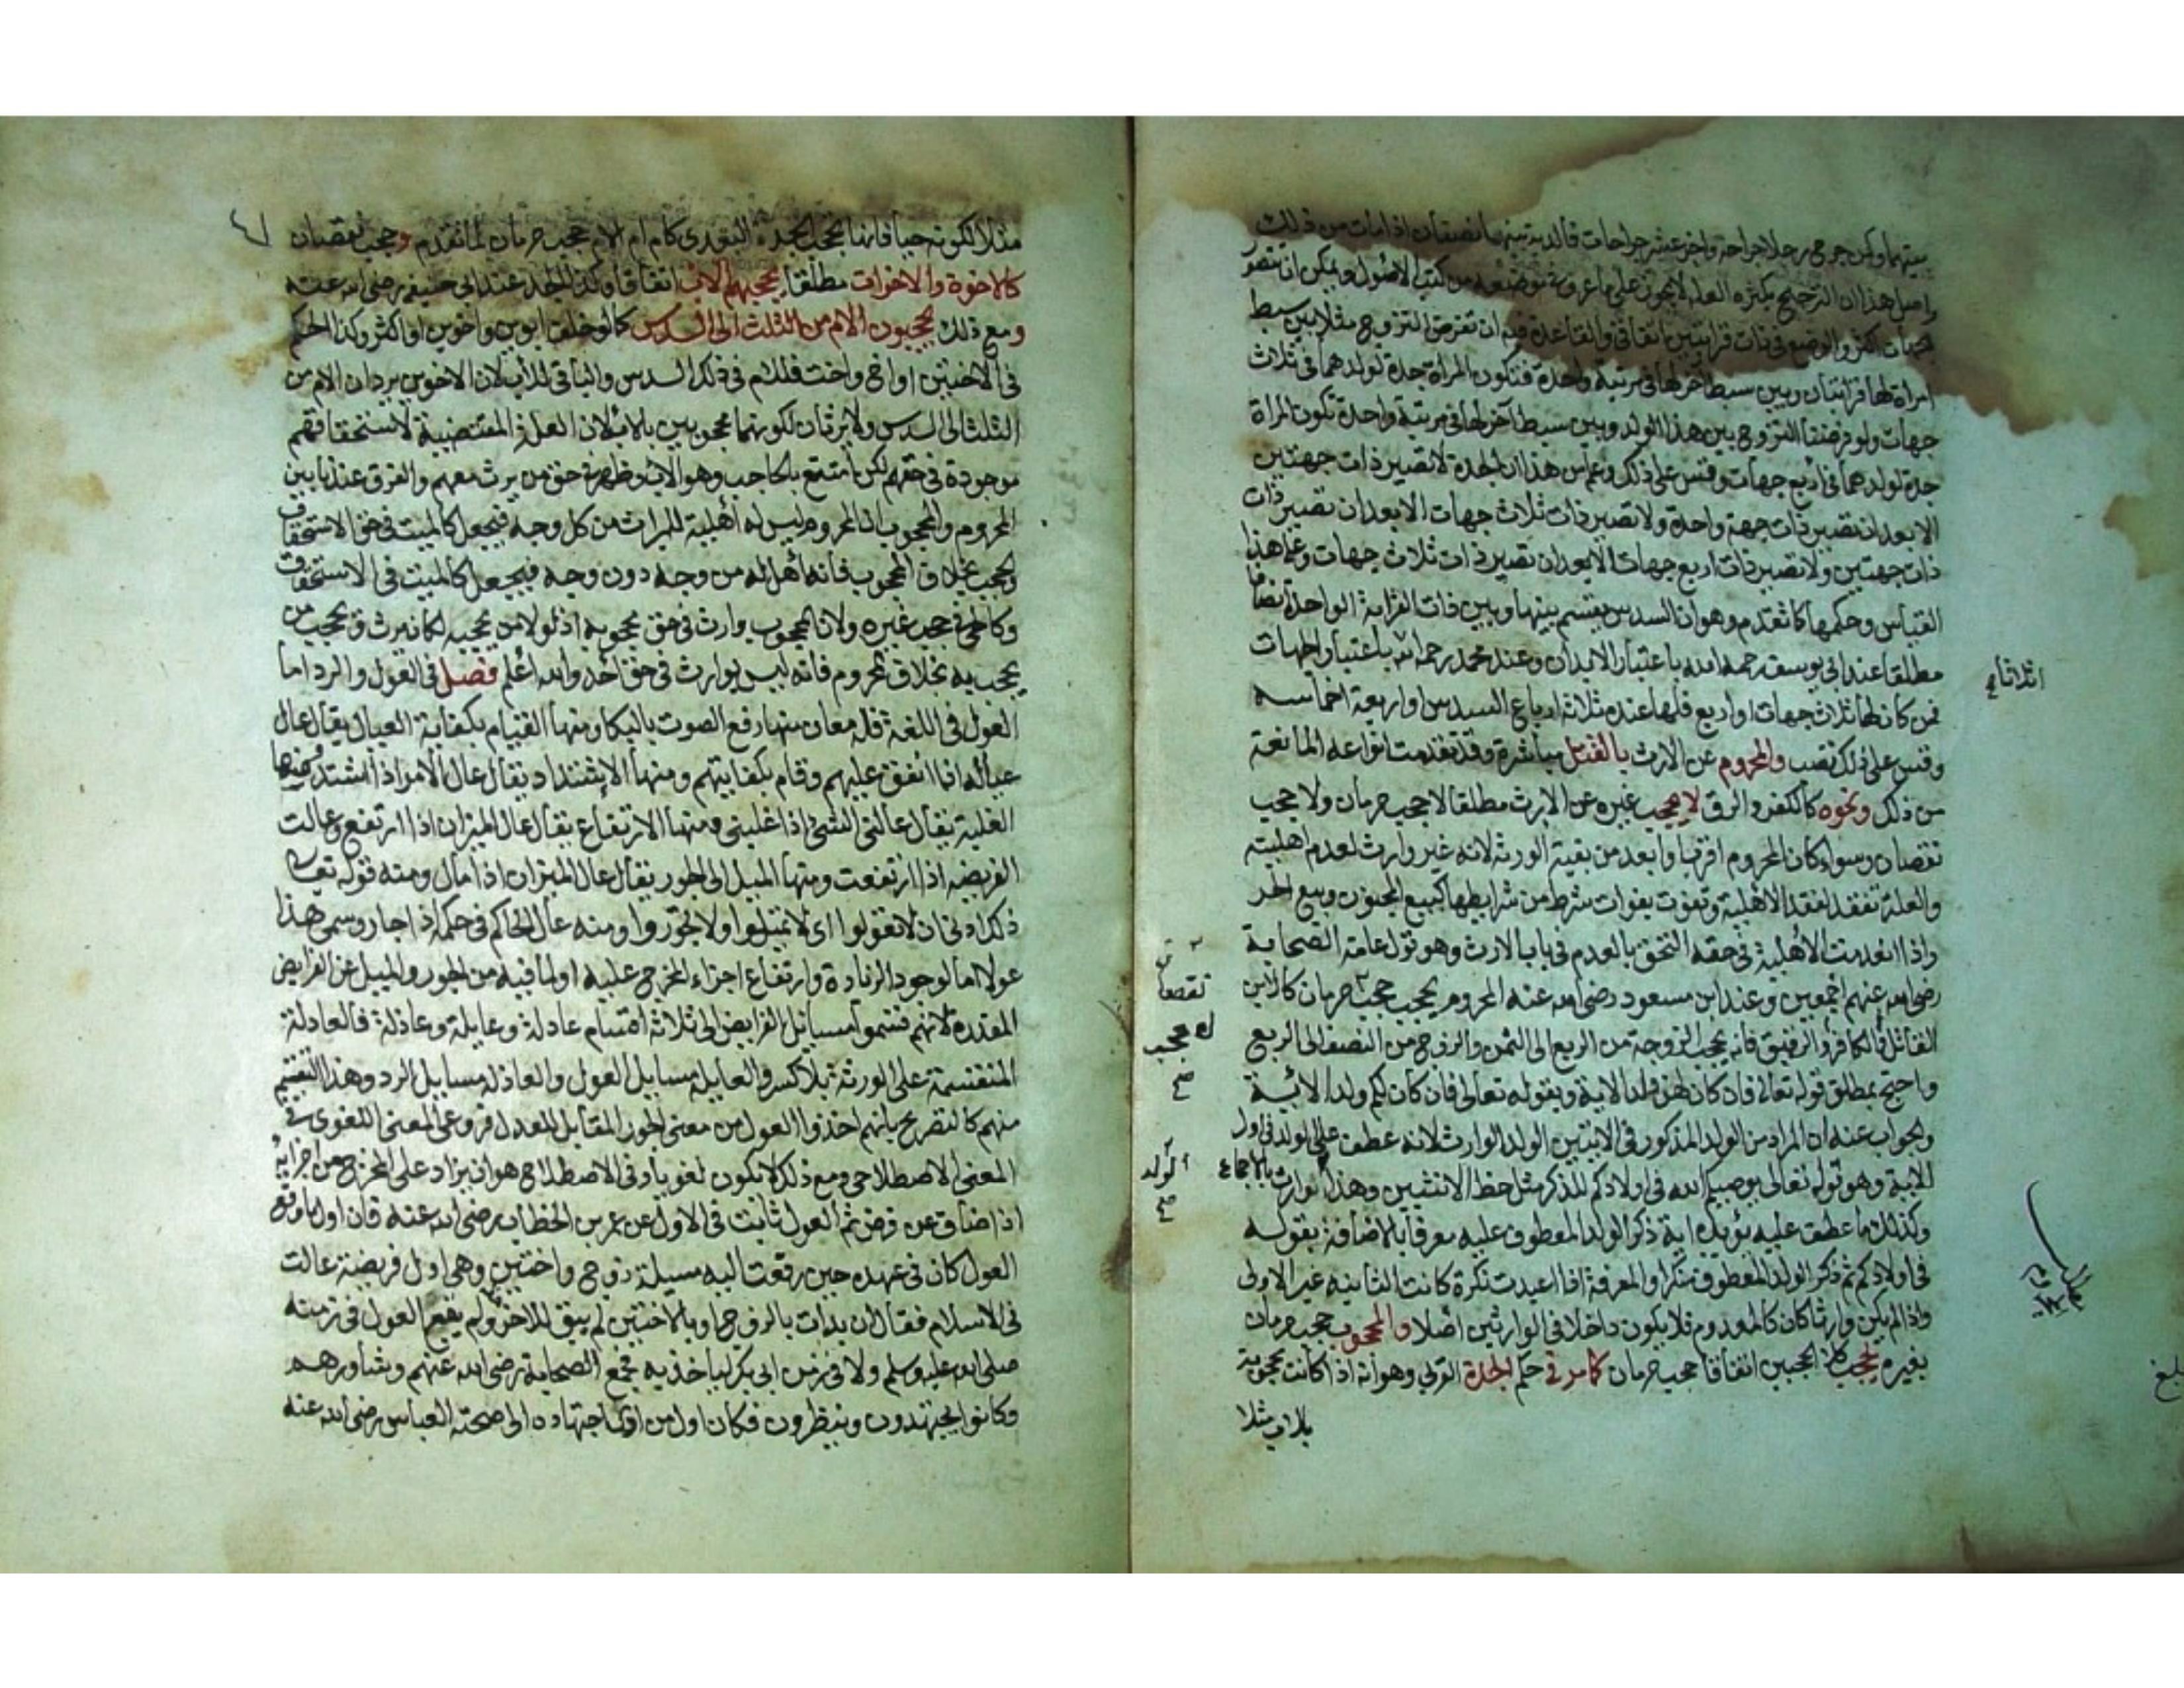 بينهما وكمن جرح رجلا جراحة واخر عشر جراحات فالدية بينهما نصفان اذا مات من ذلك
واصل هذا ان الترجيح بكثرة العلة لا يجوز على ما عرف في موضعه من كتب الاصول ويمكن ان تتصور
جهات اكثر والوضع في ذات قرابتين اتفاقي والقاعدة فيه ان تفرض التزوج مثلا بين سبط
امراة لها قرابتان وبين سبط آخر لها في مرتبة واحدة فتكون المراة جدة لولدهما في ثلاث
جهات ولو فرضنا التزوج بين هذا الولد وبين سبط آخر لها في مرتبة واحدة تكون المراة
جدة لولدهما في اربع جهات وقس على ذلك وعلم من هذا ان الجدة لا تصير ذات جهتين
الا بعد ان تصير ذات جهة واحدة ولا تصير ذات ثلاث جهات الا بعد ان تصير ذات
ذات جهتين ولا تصير ذات اربع جهات الا بعد ان تصير ذات ثلاث جهات وعلى هذا
القياس وحكمها كما تقدم وهو ان السدس يقسم بينها وبين ذات القرابة الواحدة انصافا
مطلقا عند ابي يوسف رحمه الله باعتبار الابدان وعند محمد رحمه الله باعتبار الجهات
اثلاثا
فمن كان لها ثلاث جهات او اربع فلها عنده ثلاثة ارباع السدس او اربعة اخماسه
وقس على ذلك تصب والمحروم عن الارث بالقتل مباشرة وقد تقدمت انواعه المانعة
من ذلك ونحوه كالكفر والرق لا يحجب غيره عن الارث مطلقا لا حجب حرمان ولا حجب
نقصان وسواء كان المحروم اقرب او ابعد من بقية الورثة لانه غير وارث لعدم اهليته
والعلة تفقد لفقد الاهلية وتفوت بفوات شرط من شرايطها كبيع المجنون وبيع الحر
واذا انعدمت الاهلية في حقه التحق بالعدم في باب الارث وهو قول عامة الصحابة
رضي الله عنهم اجمعين وعند ابن مسعود رضي الله عنه المحروم يحجب حجب حرمان كالابن
نقصان
القاتل او الكافر او الرقيق فانه يحجب الزوجة من الربع الى الثمن والزوج من النصف الى الربع
واحتج بمطلق قوله تعالى فان كان لهن ولد الاية وبقوله تعالى فان كان لكم ولد الاية
والجواب عنه ان المراد من الولد المذكور في الايتين الولد الوارث لانه عطف على الولد في اول
الاية وهو قوله تعالى يوصيكم الله في اولادكم للذكر مثل حظ الانثيين وهذا الوارث بالاجماع
الولد صح
وكذلك ما عطف عليه يؤيده انه ذكر الولد المعطوف عليه معرفا بالاضافة بقوله
في اولادكم ثم ذكر الولد المعطوف منكرا والمعرفة اذا اعيدت نكرة كانت الثانية غير الاولى
واذا لم يكن وارثا كان كالمعدوم فلا يكون داخلا في الوارثين اصلا والمحجوب حجب حرمان
بغيره يحجب كلا الحجبين اتفاقا حجب حرمان كما مر في حكم الجدة القربى وهو انه اذا كانت محجوبة
بالاب مثلا
مثلا لكونه حيا فانها تحجب الجدة البعدى كام ام الام حجب حرمان لما تقدم وحجب نقصان
كالاخوة والاخوات مطلقا يحجبهم الاب اتفاقا وكذا الجد عند ابي حنيفة رضي الله عنه
ومع ذلك يحجبون الام من الثلث الى السدس كما لو خلف ابوين واخوين او اكثر وكذا الحكم
في الاختين او اخ واخت فللام في ذلك السدس والباقي للاب لان الاخوين يردان الام من
الثلث الى السدس ولا يرثان لكونهما محجوبين بالاب لان العلة المقتضية لاستحقاقهم
موجودة في حقهم لكن امتنع بالحاجب وهو الاب وظهر في حق من يرث معهم والفرق عندنا بين
المحروم والمحجوب ان المحروم ليس له اهلية الميراث من كل وجه فيجعل كالميت في حق الاستحقاق
والحجب بخلاف المحجوب فانه اهل له من وجه دون وجه فيجعل كالميت في الاستحقاق
وكالحي في حجب غيره ولان المحجوب وارث في حق محجوبه اذ لولا من يحجبه لكان يرث ويحجب من
يحجب به بخلاف المحروم فانه ليس بوارث في حق احد والله اعلم فصل في العول والرد اما
العول في اللغة فله معان منها رفع الصوت بالبكا ومنها القيام بكفاية العيال يقال عال
عياله اذا انفق عليهم وقام بكفايتهم ومنها الاشتداد يقال عال الامر اذا اشتد ومنها
الغلبة يقال عالني الشئ اذا غلبني ومنها الارتفاع يقال عال الميزان اذا ارتفع وعالت
الفريضة اذا ارتفعت ومنها الميل الى الجور يقال عال الميزان اذا مال ومنه قوله تعالى
ذلك ادنى ان لا تعولوا اى لا تميلوا ولا تجوروا ومنه عال الحاكم في حكمه اذا جار وسمي هذا
عولا اما لوجود الزيادة وارتفاع اجزاء المخرج عليه او لما فيه من الجور والميل عن الفرايض
المقدرة لانهم قسموا مسائل الفرايض الى ثلاثة اقسام عادلة وعايلة وعاذلة فالعادلة
المنقسمة على الورثة بلا كسر والعايلة مسايل العول والعاذلة مسايل الرد وهذا التقسيم
منهم كالتصريح بانهم اخذوا العول من معنى الجور المقابل للعدل فروعي المعنى اللغوي في
المعنى الاصطلاحي ومع ذلك لا يكون لغويا وفي الاصطلاح هو ان يزاد على المخرج من اجزايه
اذا ضاق عن فرض ثم العول ثابت في الاول عن عمر بن الخطاب رضي الله عنه فان اول ما وقع
العول كان في عهده حين رفعت اليه مسيلة زوج واختين وهي اول فريضة عالت
في الاسلام فقال ان بدات بالزوج او بالاختين لم يبق للاخر ولم يقع العول في زمنه
صلى الله عليه وسلم ولا في زمن ابي بكر لياخذ به فجمع الصحابة رضي الله عنهم وشاورهم
وكانوا يجتهدون وينظرون فكان اول من اجتهاده الى صحته العباس رضي الله عنه